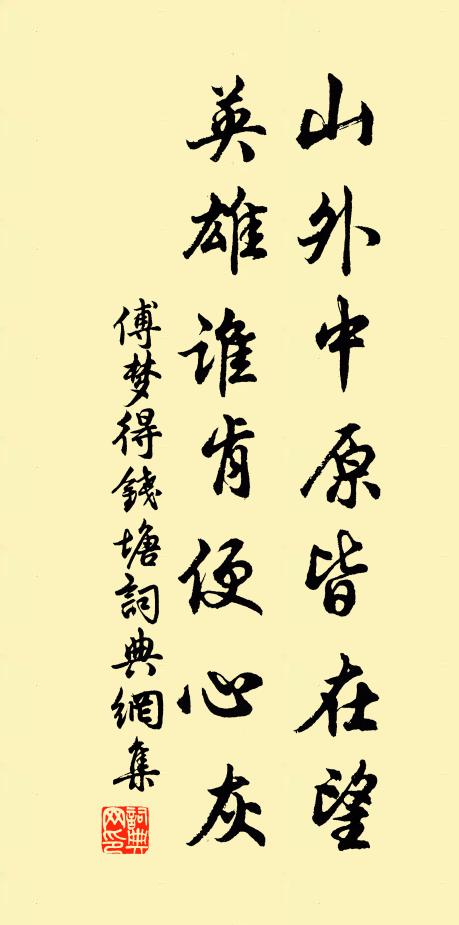 山外中原皆在望
英雄谁肯便心灰
傅梦得錢塘詞典網集
詞典网印